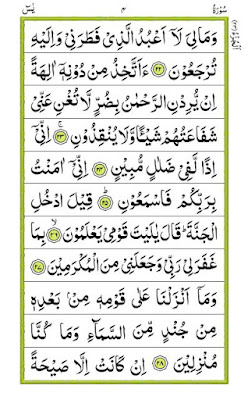 سُوْرَةُ ٤ يٰسٓ
وَمَالِىَ لَآ اَعْبُدُ الَّذِىْ فَطَرَنِىْ وَاِلَيْهِ
تُرْجَعُوْنَ ﴿٢٢﴾ ءَاَتَّخِذُ مِنْ دُوْنِهٖٓ اٰلِهَةً
اِنْ يُّرِدْنِ الرَّحْمٰنُ بِضُرٍّ لَّا تُغْنِ عَنِّىْ
شَفَاعَتُهُمْ شَيْئًا وَّلَا يُنْقِذُوْنِ ﴿٢٣﴾ اِنِّىْٓ
اِذًا لَّفِىْ ضَلٰلٍ مُّبِيْنٍ ﴿٢٤﴾ اِنِّىْٓ اٰمَنْتُ
بِرَبِّكُمْ فَاسْمَعُوْنِ ﴿٢٥﴾ قِيْلَ ادْخُلِ
الْجَنَّةَ ؕ قَالَ يٰلَيْتَ قَوْمِىْ يَعْلَمُوْنَ ﴿٢٦﴾ بِمَا
غَفَرَلِىْ رَبِّىْ وَجَعَلَنِىْ مِنَ الْمُكْرَمِيْنَ ﴿٢٧﴾
وَمَآ اَنْزَلْنَا عَلٰى قَوْمِهٖ مِنْۢ بَعْدِهٖ
مِنْ جُنْدٍ مِّنَ السَّمَآءِ وَمَا كُنَّا
مُنْزِلِيْنَ ﴿٢٨﴾ اِنْ كَانَتْ اِلَّا صَيْحَةً